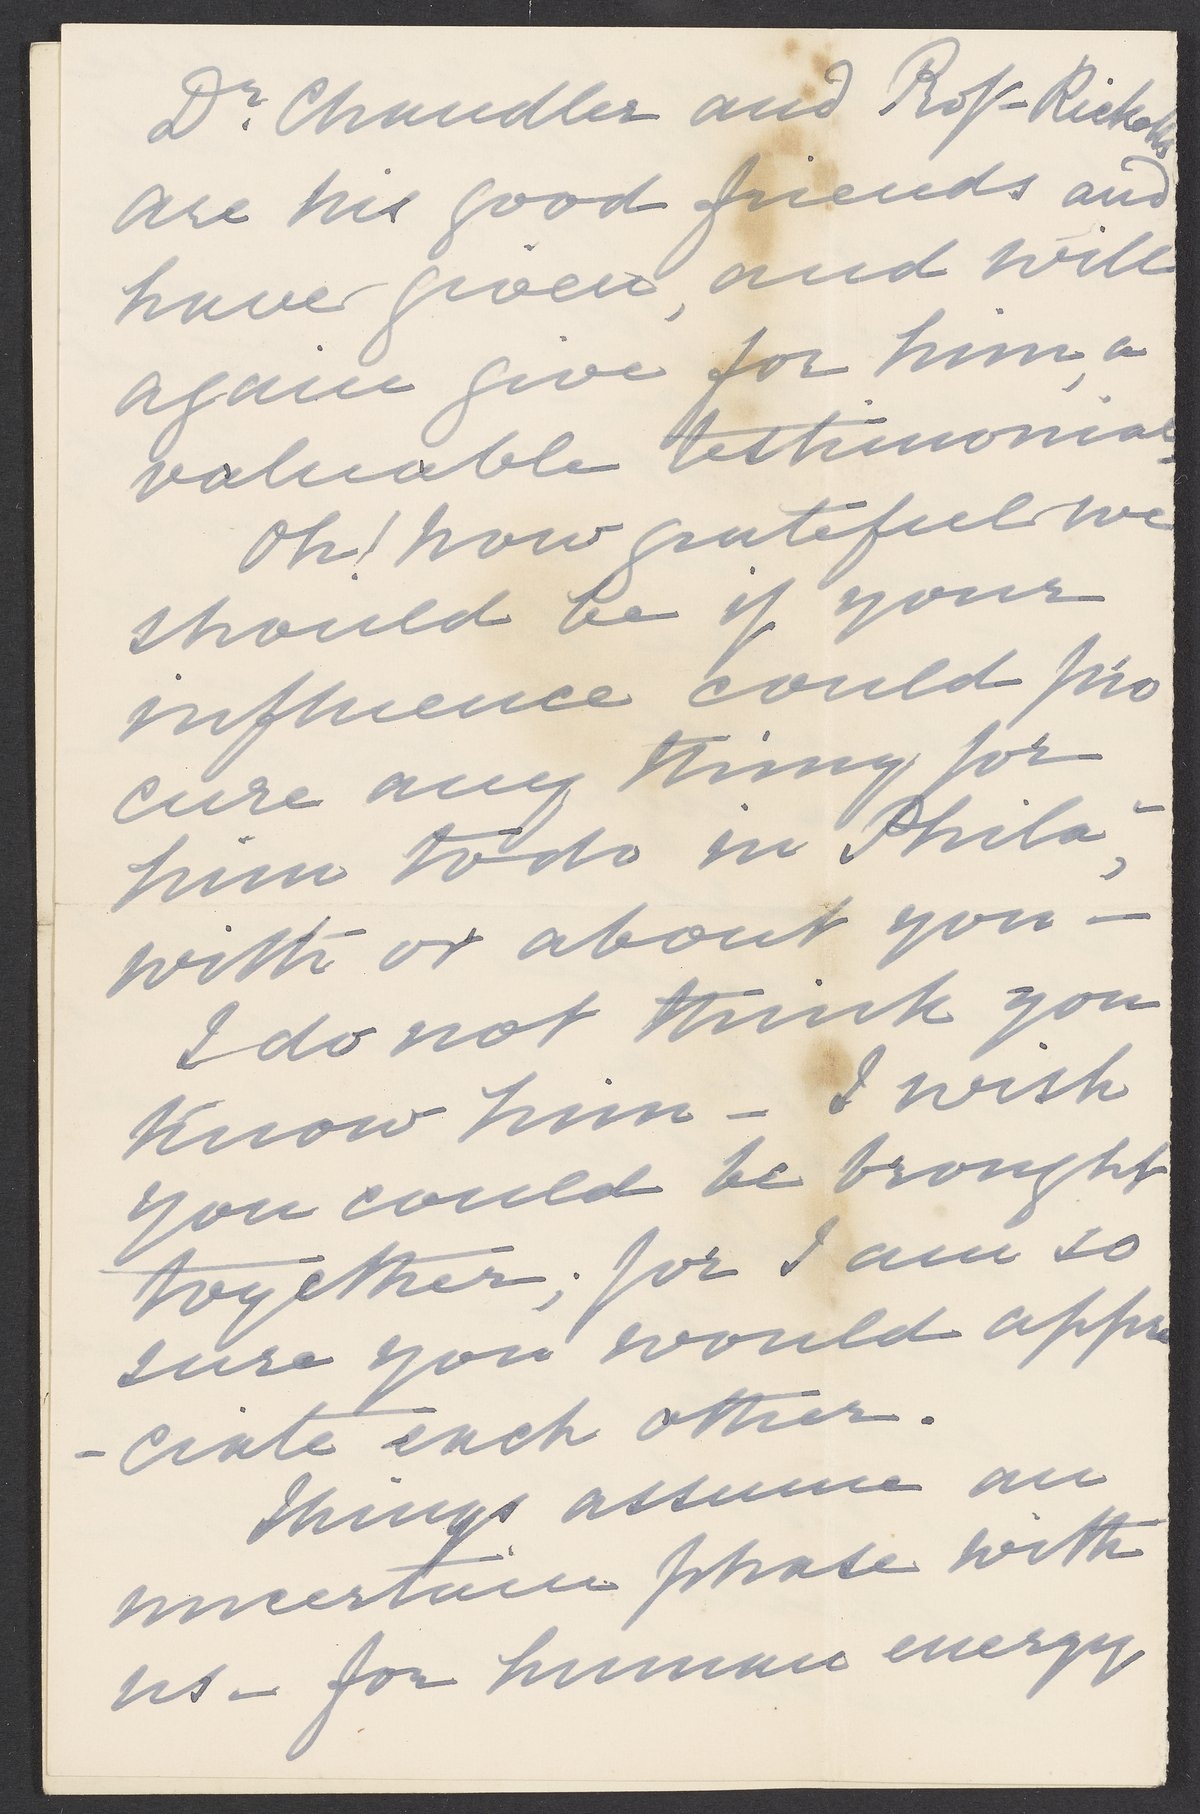 Dr. Chandler and Prof- Ricketts
are his good friends and
have given, and will
again give for him, a
valuable testimonial,
Oh! how grateful we
should be if your
influence could pro
cure any thing for
him to do in Phila-,
with or about you -
I do not think you
know him - I wish
you could be brought
together; for I am so
sure you would appre
-ciate each other.
Things assume an
uncertain phase with
us - for human energy